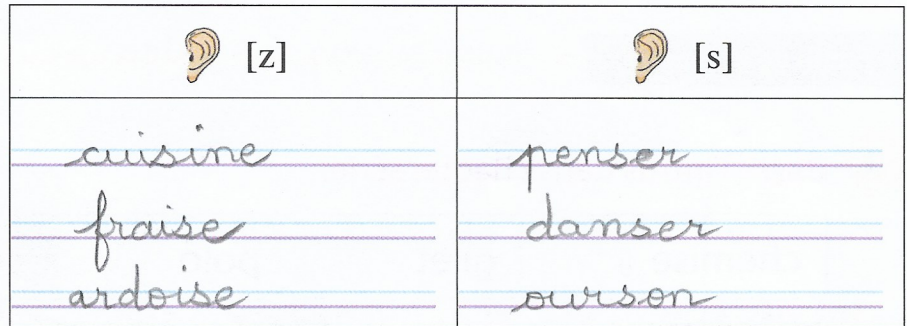 [z] [s]
cuisine penser
fraise danser
ardoise ourson